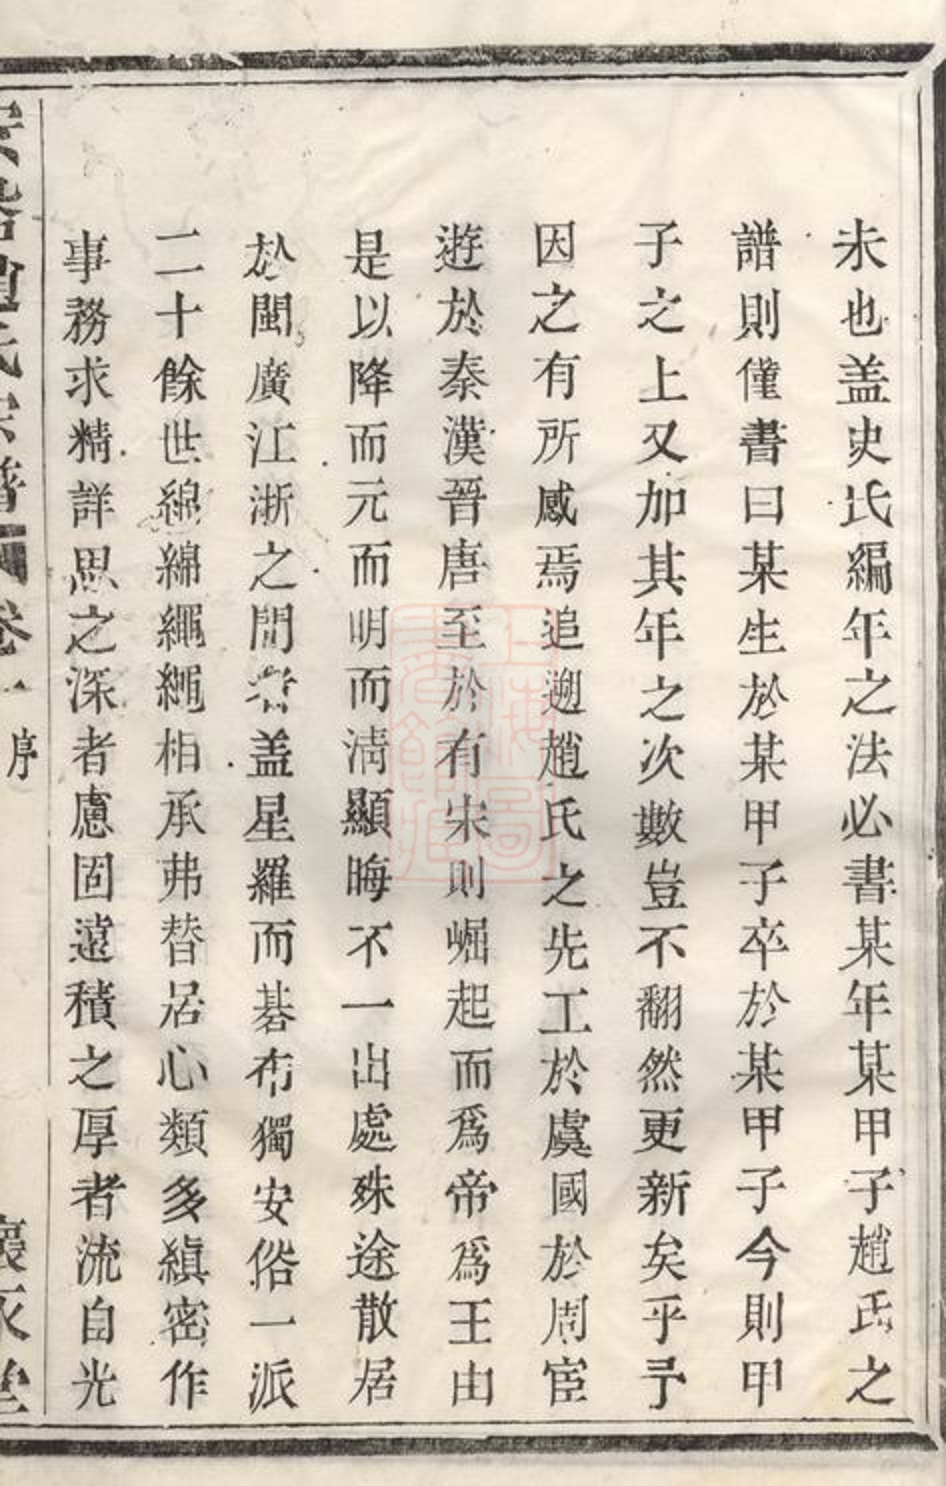 未也盖史氏編年之法必書某年某甲子趙氏之
譜則僅書曰某生於某甲子卒於某甲子今則甲
子之上又加其年之次數豈不翻然更新矣乎予
因之有所感焉追遡趙氏之先工於虞國於周宦
遊於秦漢晉唐至於有宋則崛起而爲帝爲王由
是以降而元而明而淸顯晦不一出處殊途散居
於閩廣江浙之間者盖星羅而碁布獨安俗一派
二十餘世綿綿繩繩相承弗替居心類多縝密作
事務求精詳思之深者慮固遠積之厚者流自光
趙氏宗譜 卷一 序